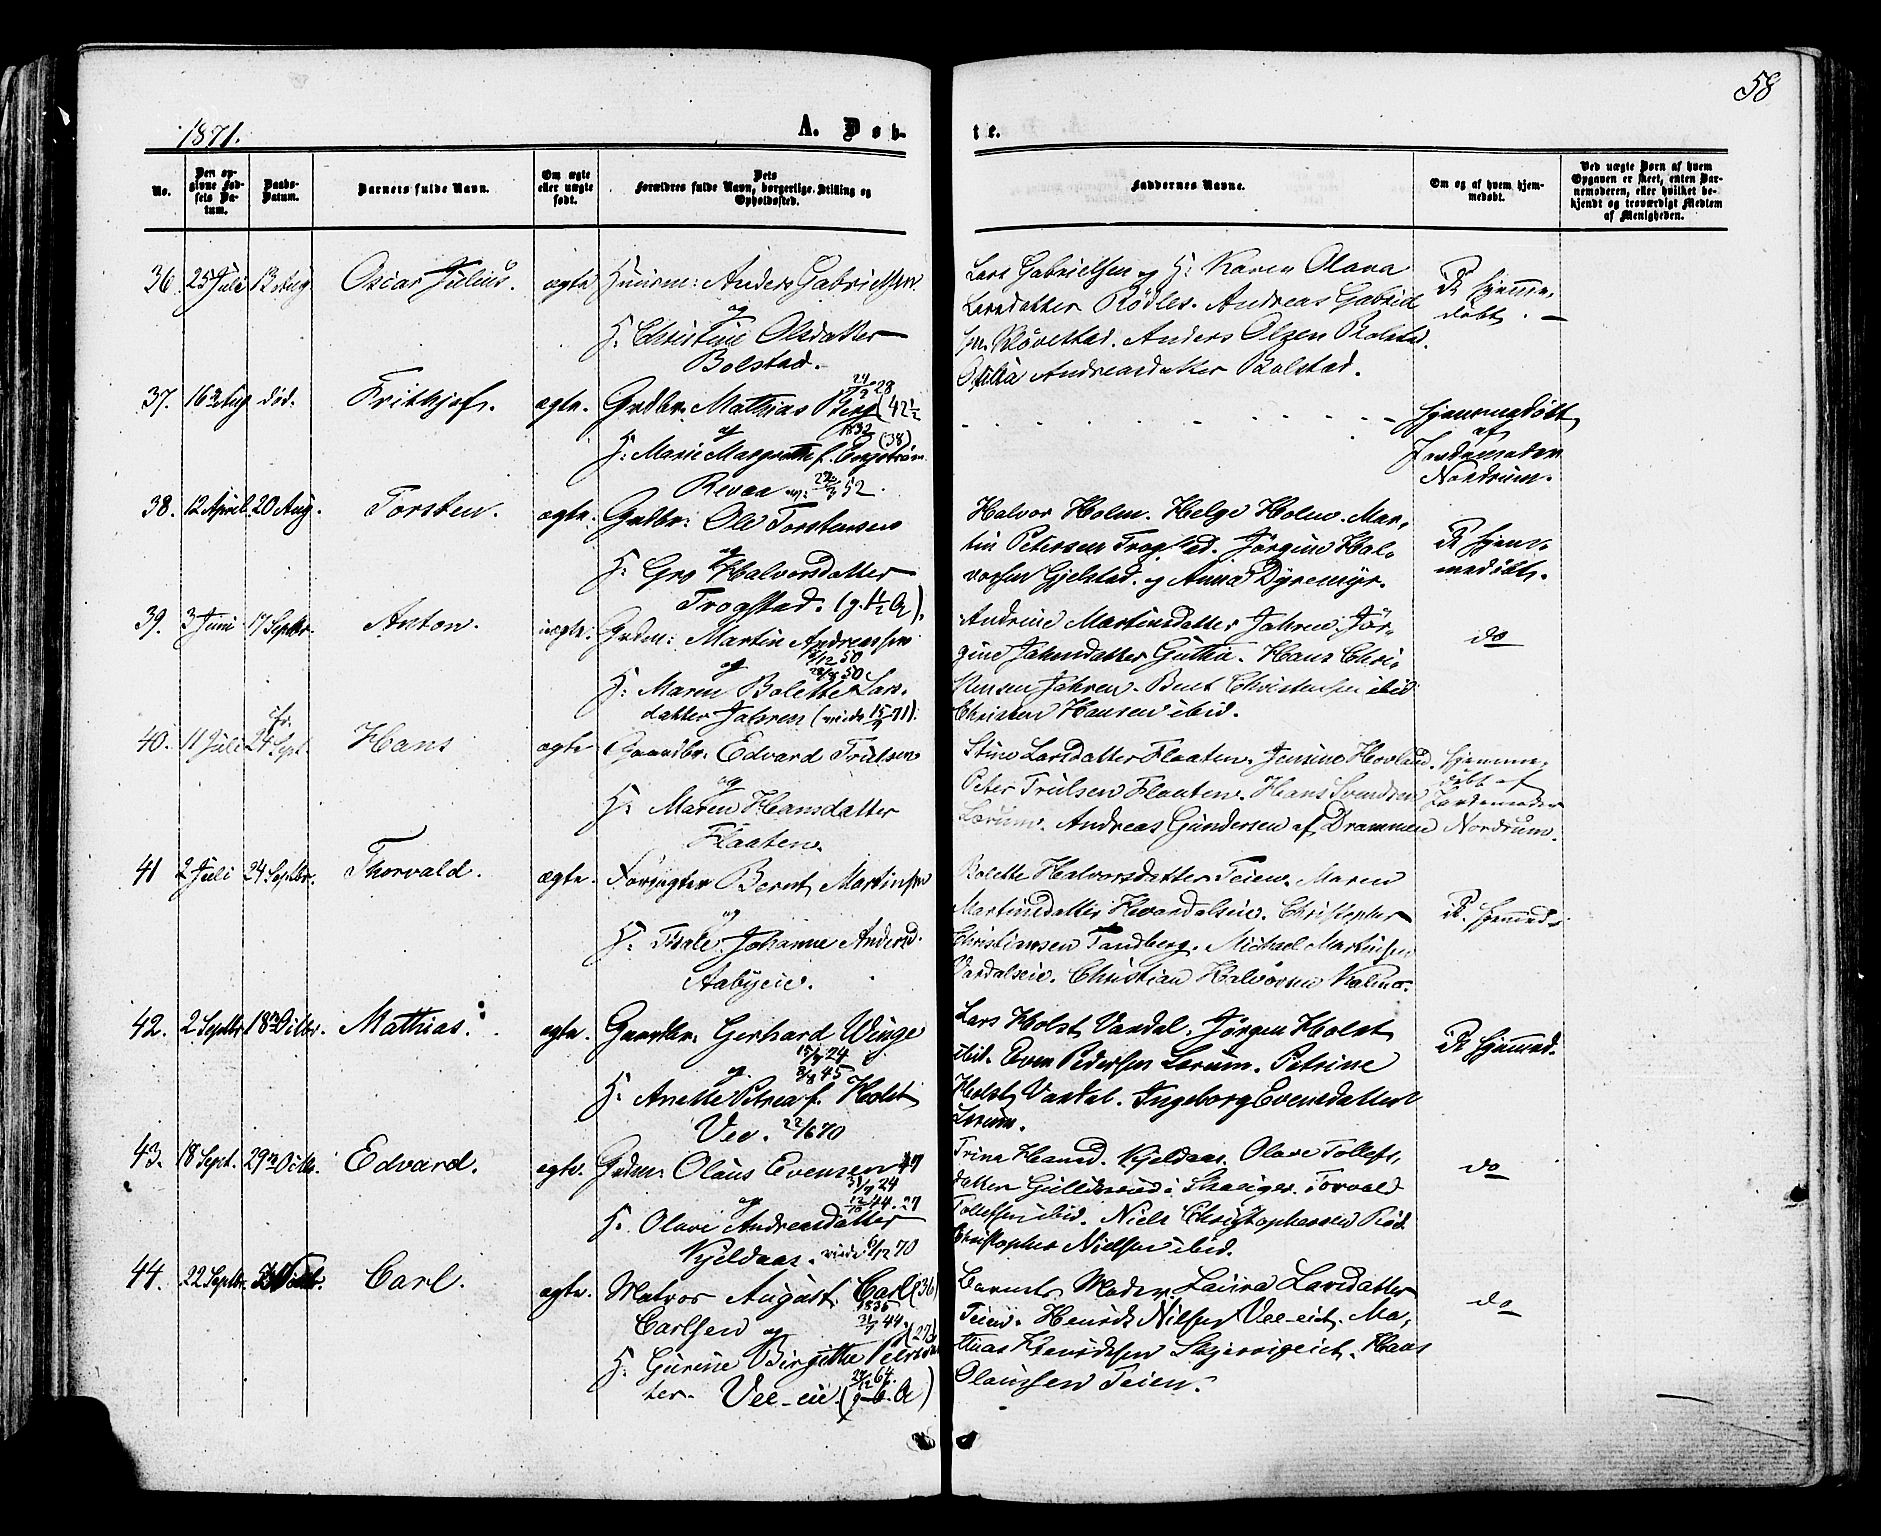 58
1871.
A. Døb-
te.
No.
Den opgivne Fødsels Datum.
Daabs-Datum.
Barnets fulde Navn.
Om ægte eller uægte født.
Dets Forældres fulde Navn, borgerlige Stilling og Opholdssted.
Faddernes Navne.
Om og af hvem hjemmedøbt.
Ved uægte Børn af hvem Opgaven er skeet, enten Barnemoderen, eller hvilket bekjendt og troværdigt Medlem af Menigheden.
36. 25 Juli 13 Aug Oscar Julius. ægte Huusm: Anders Gabrielsen
og
H. Christine Olsdatter
Bolstad.
Lars Gabrielsen og H: Karen Olava
Larsdatter Rødles. Andreas Gabriel
sen Kløvestad. Anders Olsen Bolstad.
Andreasdatter Bolstad.
hjemme,
døbt. —
37. 16 Aug død. Frithjof. ægte. Grdbr. Mathias Berg (42½
og 1832 (38)
H: Marie Margrethe f. Engstrøm
Revaa
hjemmedøbt
af
Jordemoder
Nordrum.
38. 12 April. 20 Aug. Torsten. ægte. Grdbr: Ole Torstensen
og
H: Gro Halvorsdatter
Trogstad.
Halvor Holm. Helge Holm. Mar,
tin Petersen Trogstad. Jørgine Hal,
vorsen Gjelstad. og Anna Dyremyr.
hjem,
medøbt.
39. 3 Juni 17 Septbr. Anton. Grdm: Martin Andreassen
og
H: Maren Bolette Lars,
datter Jahren (viede 15/9 71).
Andrine Martinsdatter Jahren. Jør,
gine Jahnsdatter Guthu. Hans Chri,
stensen Jahren. Bent Christensen ibid
Christen Hansen ibid.
do
40. 11 Juli 24 Sept. Hans ægte Gaardbr. Edvard Trulsen
og
H: Maren Hansdatter
Flaaten.
Stine Larsdatter Flaaten. Jensine Hovland.
Peter Trulsen Flaaten. Hans Svendsen
Lorum. Andreas Gundersen af Drammen
hjemme,
døbt af
Jordemoder
Nordrum.
41 2 Juli 24 Septbr. Thorvald. ægte. Forpagter Bernt Martinsen
og
H: Thale Johanne Andersd.
Aabyeie.
Bolette Halvorsdatter Teien. Maren
Martinsdatter Christopher
Christiansen Tandberg. Michael Martinsen
Vardalseie. Christian Halvorsen
hjemmed.
42. 2 Septbr 18 Octbr. Mathias. ægte. Gaardbr. Gerhard Winge
17/9 24
og 8/8 45
H: Anette Petrea f. Holst
Vee. 22/6 70
Lars Holst Vardal. Jørgen Holst
ibid. Even Pedersen Lorum. Petrine
Holst Vardal. Ingeborg Evensdatter
Lorum.
hjemmed.
43. 18 Sept. 29 Octbr. Edvard. ægte. Grdm: Olaus Evensen 47
og
H: Olave Andreasdatter
Kjeldaas. viede 6/12 70
Trine Hansd. Kjeldaas. Olave Tollefs,
datter Gullidsrud i Skauger. Torvald
Tollefsen ibid. Niels Christophersen Rød
Christopher Nielsen ibid.
do
44. 22 Septbr. Carl. ægte. Matros August Carl (36)
1835
Carlsen og 31/7 44. (27)
H: Gurine Birgitthe Peders
ter. Vee-eie.
Barnets Moder. Laura Larsdatter
Teien. Henrik Nilsen Vee-eie. Ma,
thias Henriksen Skjerrigeie. Hans
Olaussen Teien.
do